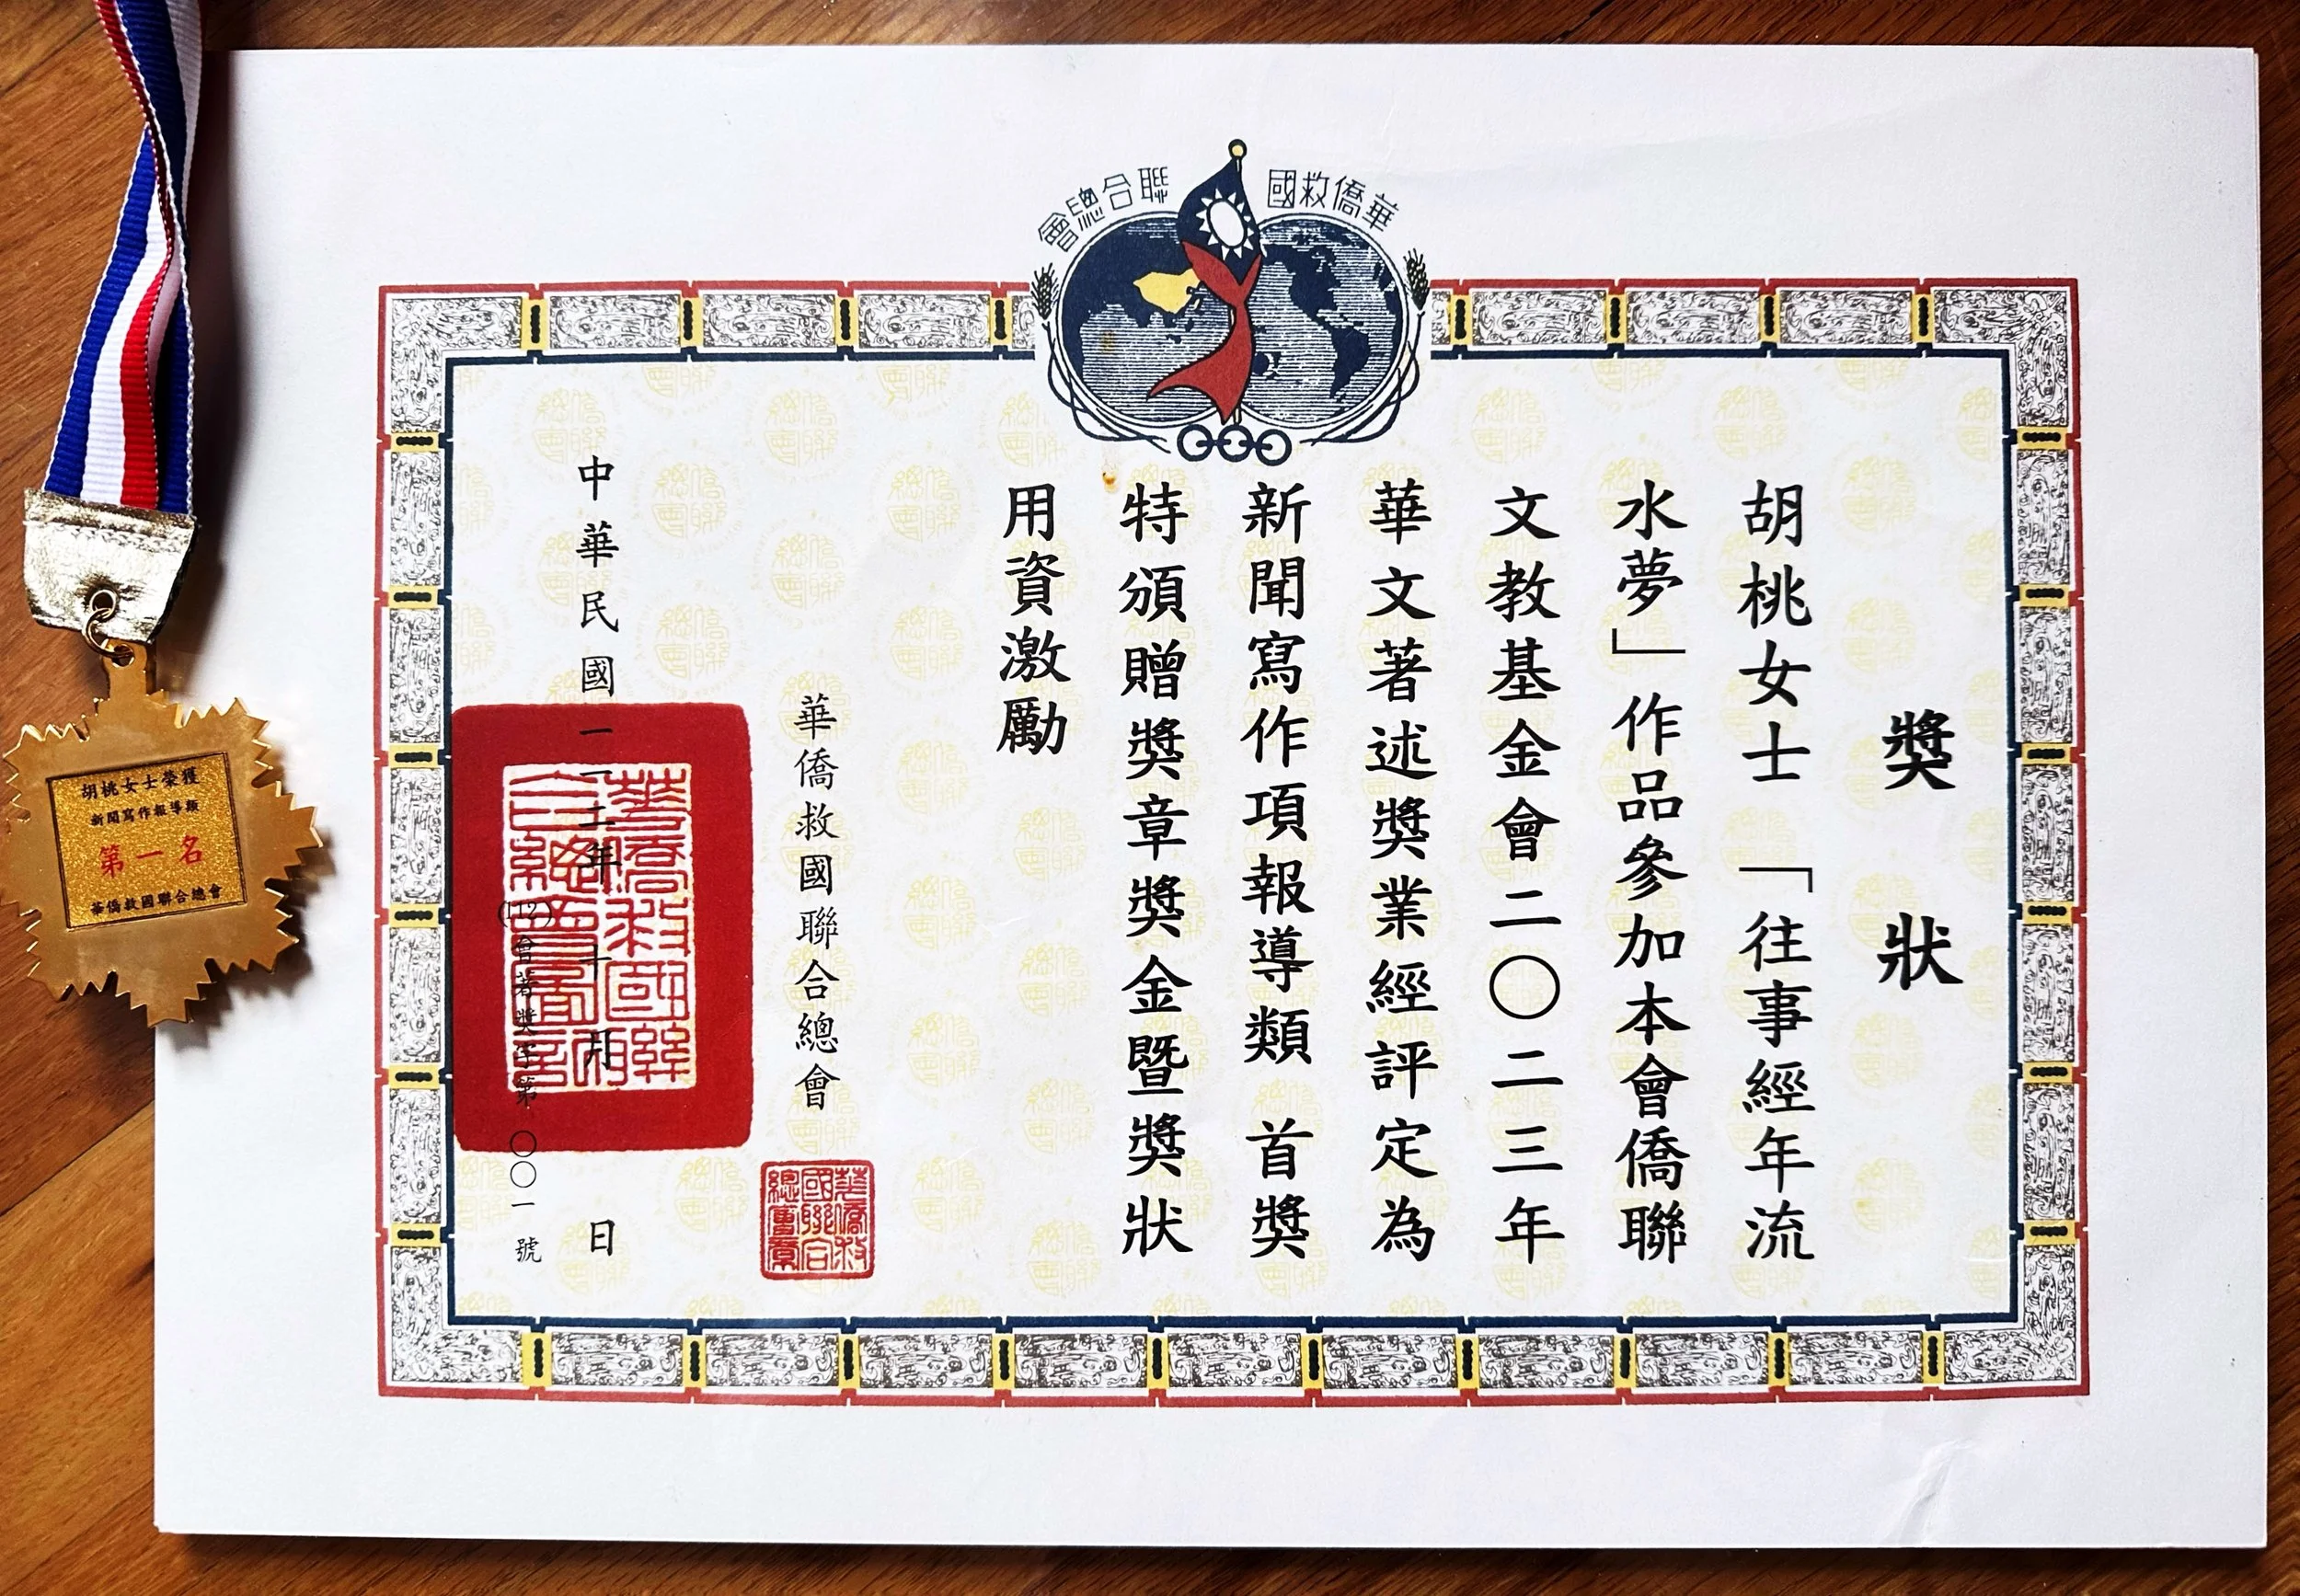 華僑救國聯合總會
獎狀
胡桃女士「往事經年流
水夢」作品參加本會僑聯
文教基金會二〇二三年
華文著述獎業經評定為
新聞寫作項報導類 首獎
特頒贈獎章獎金暨獎狀
用資激勵
華僑救國聯合總會
中華民國一一二年十月 日
(112)會著獎字第〇〇一號
胡桃女士榮獲
新聞寫作報導類
第一名
華僑救國聯合總會